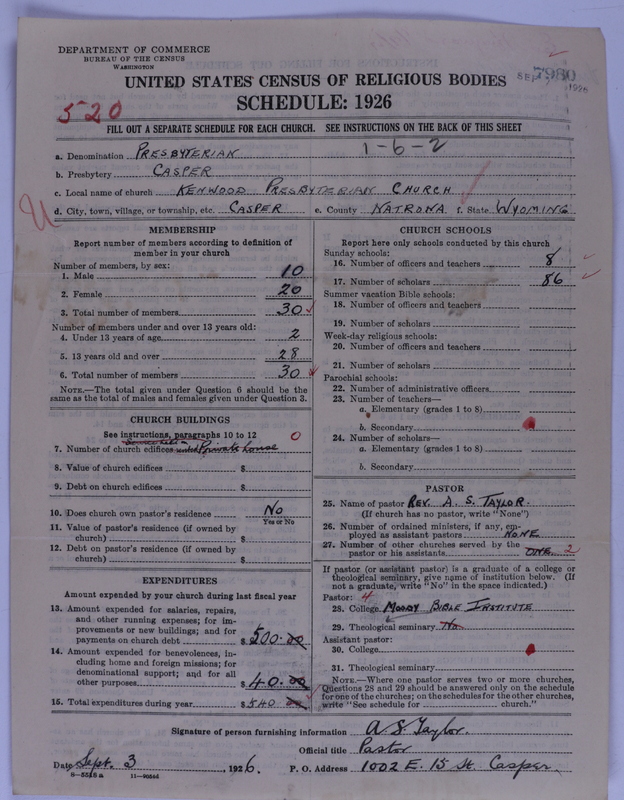 DEPARTMENT OF COMMERCE
BUREAU OF THE CENSUS
WASHINGTON
UNITED STATES CENSUS OF RELIGIOUS BODIES
SEP 1926
SCHEDULE: 1926
520
FILL OUT A SEPARATE SCHEDULE FOR EACH CHURCH. SEE INSTRUCTIONS ON THE BACK OF THIS SHEET
a. Denomination PRESBYTERIAN 1-6-2
b. Presbytery CASPER
c. Local name of church KENWOOD PRESBYTERIAN CHURCH
d. City, town, village, or township, etc. CASPER e. County NATRONA f. State WYOMING
MEMBERSHIP
Report number of members according to definition of
member in your church
Number of members, by sex:
1. Male 10
2. Female 20
3. Total number of members 30
Number of members under and over 13 years old:
4. Under 13 years of age 2
5. 13 years old and over 28
6. Total number of members 30
NOTE.—The total given under Question 6 should be the
same as the total of males and females given under Question 3.
CHURCH BUILDINGS
See instructions, paragraphs 10 to 12 0
7. Number of church edifices Private house
8. Value of church edifices $
9. Debt on church edifices $
10. Does church own pastor's residence No
Yes or No
11. Value of pastor's residence (if owned by
church) $
12. Debt on pastor's residence (if owned by
church) $
EXPENDITURES
Amount expended by your church during last fiscal year
13. Amount expended for salaries, repairs,
and other running expenses; for im-
provements or new buildings; and for
payments on church debt $ 500.00
14. Amount expended for benevolences, in-
cluding home and foreign missions; for
denominational support; and for all
other purposes $ 40.00
15. Total expenditures during year $ 540 00
CHURCH SCHOOLS
Report here only schools conducted by this church
Sunday schools:
16. Number of officers and teachers 8
17. Number of scholars 86
Summer vacation Bible schools:
18. Number of officers and teachers
19. Number of scholars
Week-day religious schools:
20. Number of officers and teachers
21. Number of scholars
Parochial schools:
22. Number of administrative officers
23. Number of teachers—
a. Elementary (grades 1 to 8)
b. Secondary
24. Number of scholars—
a. Elementary (grades 1 to 8)
b. Secondary
PASTOR
25. Name of pastor REV. A. S. TAYLOR.
(If church has no pastor, write "None")
26. Number of ordained ministers, if any, em-
ployed as assistant pastors NONE
27. Number of other churches served by the
pastor or his assistants ONE 2
If pastor (or assistant pastor) is a graduate of a college or
theological seminary, give name of institution below. (If
not a graduate, write "No" in the space indicated.)
Pastor: 4
28. College MOODY BIBLE INSTITUTE
29. Theological seminary No
Assistant pastor:
30. College
31. Theological seminary
NOTE.—Where one pastor serves two or more churches,
Questions 28 and 29 should be answered only on the schedule
for one of the churches; on the schedules for the other churches,
write "See schedule for church."
Signature of person furnishing information A. S. Taylor.
Official title Pastor
Date Sept. 3, 1926. P. O. Address 1002 E. 15 St. Casper.
8—5518 a 11—90564